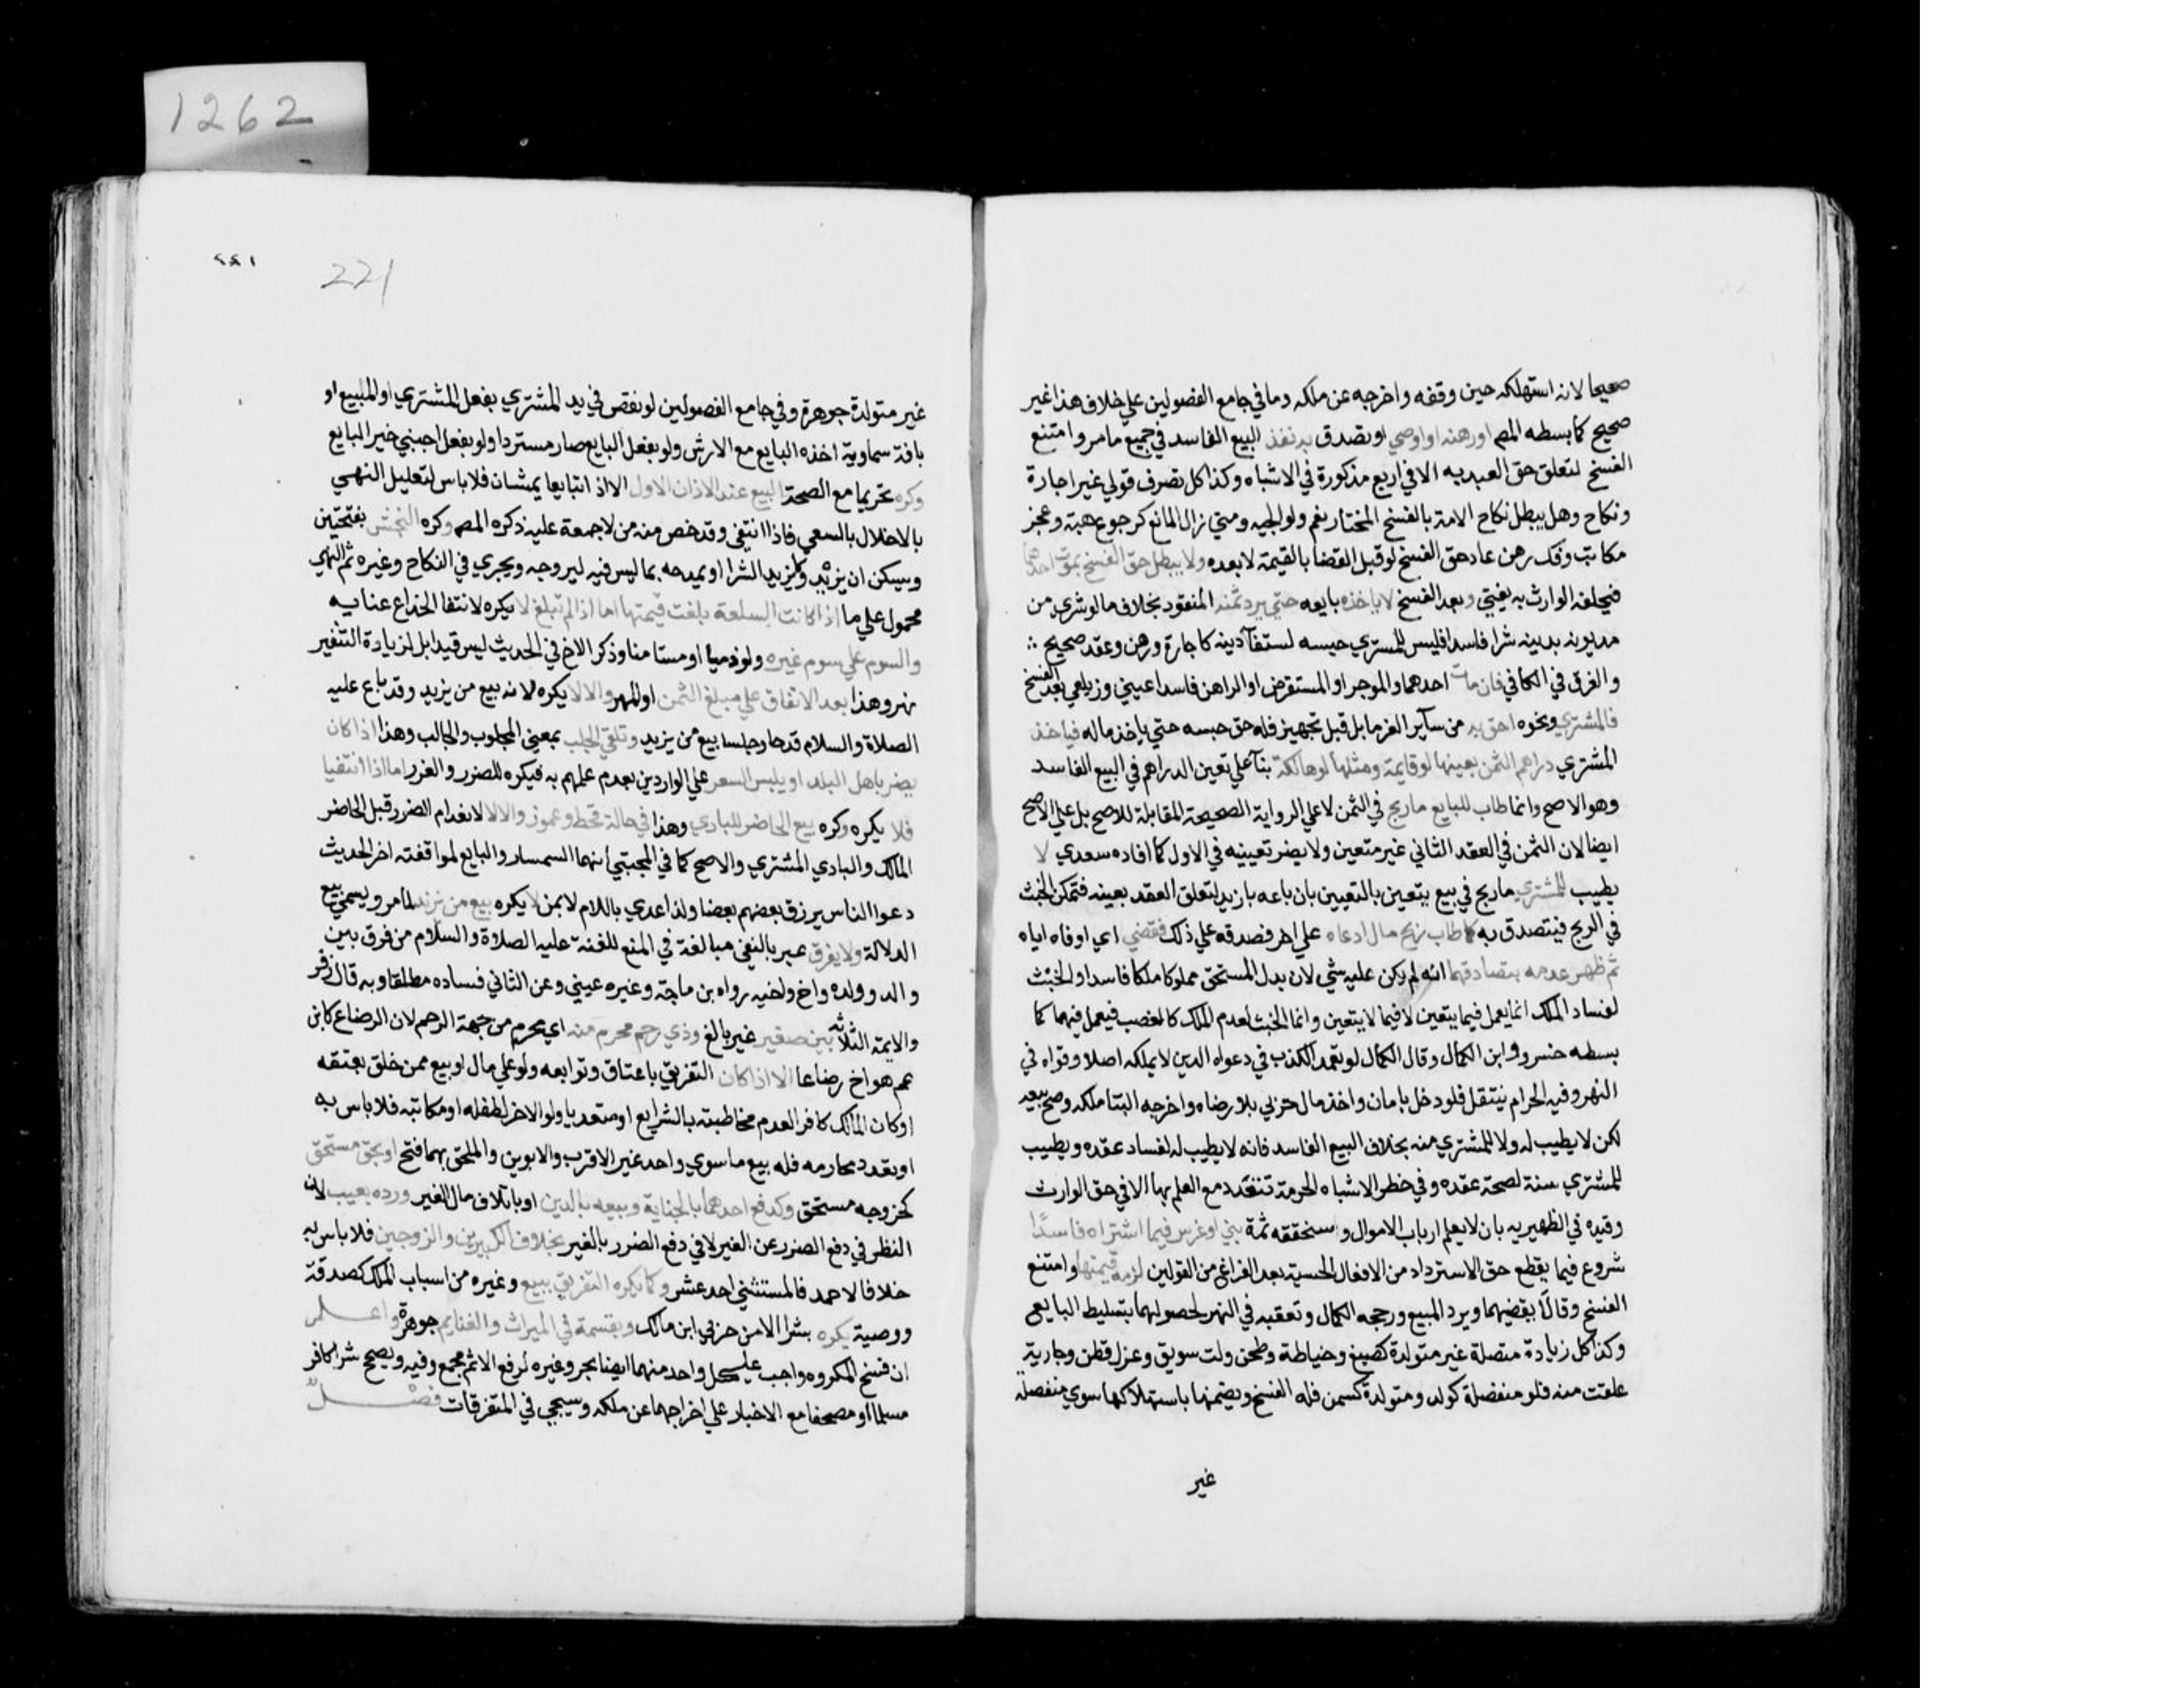 صحيحا لانه استهلكه حين وقفه واخرجه عن ملكه وما في جامع الفصولين علي خلاف هذا غير
صحيح كما بسطه المص او رهنه او اوصي او تصدق به نفذ البيع الفاسد في جميع مامر وامتنع
الفسخ لتعلق حق العبد به الا في اربع مذكورة في الاشباه وكذا كل تصرف قولي غير اجارة
ونكاح وهل يبطل نكاح الامة بالفسخ المختار نعم ولوالجيه ومتي زال المانع كرجوع هبة وعجز
مكاتب وفك رهن عاد حق الفسخ لو قبل القضا بالقيمة لا بعده ولا يبطل حق الفسخ بموت احدهما
فيخلفه الوارث به يفتي وبعد الفسخ لا ياخذه بايعه حتي يرد ثمنه المنقود بخلاف ما لو شري من
مديونه بدينه شرا فاسدا فليس للمشتري حبسه لاستفآ دينه كاجارة ورهن وعقد صحيح
والفرق في الكافي فان مات احدهما والموجر او المستقرض او الراهن فاسدا عيني وزيلعي بعد الفسخ
فالمشتري ونحوه احق به من ساير الغرما بل قبل تجهيز فله حق حبسه حتي ياخذ ماله فياخذ
المشتري دراهم الثمن بعينها لو قايمة ومثلها لو هالكة بنآ علي تعين الدراهم في البيع الفاسد
وهو الاصح وانما طاب للبايع ما ربح في الثمن لا علي الرواية الصحيحة المقابلة للاصح بل علي الاصح
ايضا لان الثمن في العقد الثاني غير متعين ولا يضر تعيينه في الاول كما افاده سعدي لا
يطيب للمشتري ما ربح في بيع يتعين بالتعيين بان باعه بازيد لتعلق العقد بعينه فتمكن الخبث
في الربح فيتصدق به كما طاب ربح مال ادعاه علي اخر فصدقه علي ذلك فقضي اي اوفاه اياه
ثم ظهر عدمه بتصادقهما انه لم يكن عليه شي لان بدل المستحق مملوكا ملكا فاسدا والخبث
لفساد الملك انما يعمل فيما يتعين لا فيما لا يتعين وانما الخبث لعدم الملك كالغصب فيعمل فيهما كما
بسطه خسرو وابن الكمال وقال الكمال لو تعمد الكذب في دعواه الدين لا يملكه اصلا وقواه في
النهر وفيه الحرام ينتقل فلو دخل بامان واخذ مال حربي بلا رضاه واخرجه الينا ملكه وصح بيعه
لكن لا يطيب له ولا للمشتري منه بخلاف البيع الفاسد فانه لا يطيب له لفساد عقده ويطيب
للمشتري منه لصحة عقده وفي حظر الاشباه الحرمة تتعدد مع العلم بها الا في حق الوارث
وقيده في الظهيريه بان لا يعلم ارباب الاموال وسنحققه ثمة بني او غرس فيما اشتراه فاسدًا
شروع فيما يقطع حق الاسترداد من الافعال الحسية بعد الفراغ من القولين لزمه قيمتها وامتنع
الفسخ وقالا ينقضهما ويرد المبيع ورجحه الكمال وتعقبه في النهر لحصولهما بتسليط البايع
وكذا كل زيادة متصلة غير متولدة كصبغ وخياطة وطحن ولت سويق وغزل قطن وجارية
علقت منه فلو منفصلة كولد ومتولدة كسمن فله الفسخ ويضمنها باستهلاكها سوي منفصلة
غير
1262
٢٢١
221
غير متولدة جوهرة وفي جامع الفصولين لو نقص في يد المشتري بفعل المشتري او المبيع او
بافة سماوية اخذه البايع مع الارش ولو بفعل البايع صار مستردا ولو بفعل اجنبي خير البايع
وكره تحريما مع الصحة البيع عند الاذان الاول الا اذ اتبايعا يمشيان فلا باس لتعليل النهي
بالاخلال بالسعي فاذا انتفي وقد خص منه من لا جمعة عليه ذكره المص وكره النجش بفتحتين
ويسكن ان يزيد ولا يريد الشرا او يمدحه بما ليس فيه ليروجه ويجري في النكاح وغيره ثم النهي
محمول علي ما اذا كانت السلعة بلغت قيمتها اما اذا لم تبلغ لا يكره لانتفا الخداع عنايه
والسوم علي سوم غيره ولو ذميا او مستامنا وذكر الاخ في الحديث ليس قيدا بل لزيادة التنفير
نهر وهذا بعد الاتفاق علي مبلغ الثمن او المهر والا لا يكره لانه بيع من يزيد وقد باع عليه
الصلاة والسلام قدحا وحلسا بيع من يزيد وتلقي الجلب بمعني المجلوب والجالب وهذا اذا كان
يضر باهل البلد او يلبس السعر علي الواردين بعدم علمهم به فيكره للضرر والغرر اما اذا انتفيا
فلا يكره وكره بيع الحاضر للبادي وهذا في حالة قحط وعوز والا لا لانعدام الضرر قبل الحاضر
المالك والبادي المشتري والاصح كما في المجتبي انهما السمسار والبايع لموافقته اخر الحديث
دعوا الناس يرزق بعضهم بعضا ولذا عدي باللام لا بمن لا يكره بيع من يزيد لمامر ويسمي بيع
الدلالة ولا يفرق عبر بالنفي مبالغة في المنع للعنة عليه الصلاة والسلام من فرق بين
والد وولده واخ واخيه رواه بن ماجة وغيره عيني وعن الثاني فساده مطلقا وبه قال زفر
والايمة الثلاثة بين صغير غير بالغ وذي رحم محرم منه اي محرم من جهة الرحم لان الرضاع كابن
عم هو اخ رضاعا الا اذا كان التفريق باعتاق وتوابعه ولو علي مال او بيع ممن حلف بعتقه
او كان المالك كافر العدم مخاطبته بالشرايع او متعدد يا ولو الاخر لطفله او مكاتبه فلا باس به
او تعدد محارمه فله بيع ما سوي واحد غير الاقرب والابوين والملحق بهما فتح او بحق مستحق
كخروجه مستحق وكدفع احدهما بالجناية وبيعه بالدين او باتلاف مال الغير ورده بعيب لان
النظر في دفع الضرر عن الغير لا في دفع الضرر بالغير بخلاف الكبيرين والزوجين فلا باس به
خلافا لاحمد فالمستثني احد عشر وكما يكره التفريق ببيع وغيره من اسباب الملك كصدقة
ووصية يكره بشرا الا من حربي ابن مالك وبقسمة في الميراث والغنايم جوهرة واعلم
ان فسخ المكروه واجب علي كل واحد منهما ايضا بحر وغيره لرفع الاثم مجمع وفيه ويصح شرا كافر
مسلما او مصحفا مع الاجبار علي اخراجهما عن ملكه وسيجي في المتفرقات فصل